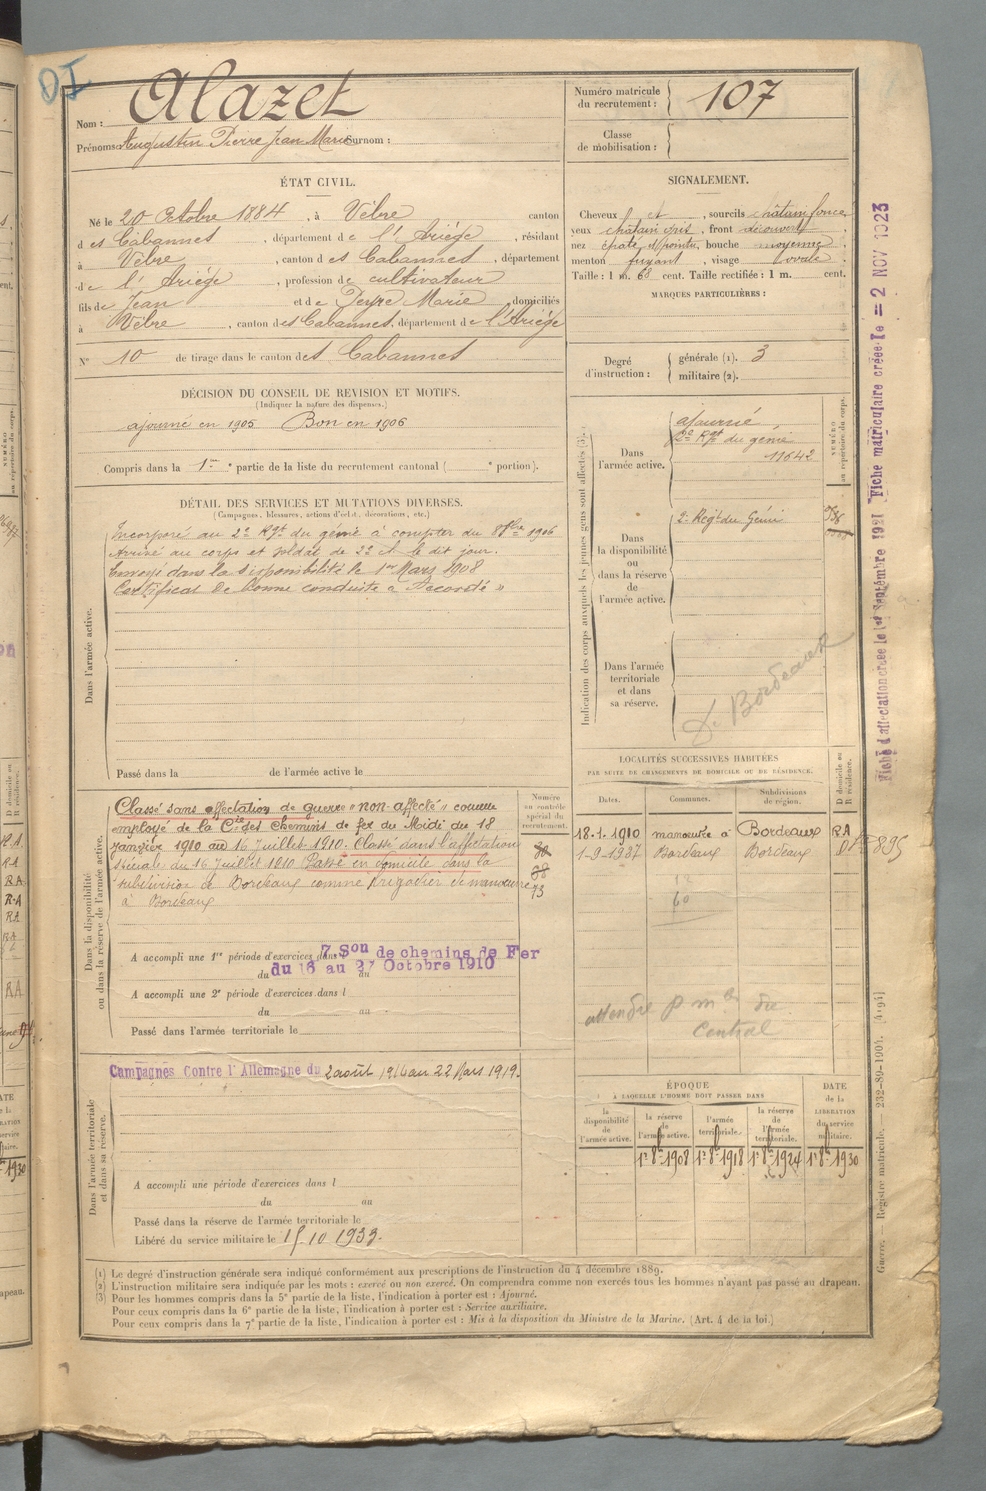 Nom : Alazet
Prénoms : Augustin Pierre Jean Marie Surnom :
Numéro matricule du recrutement : 107
Classe de mobilisation :
ÉTAT CIVIL.
Né le 20 Octobre 1884, à Vèbre canton
d es Cabannes, département de l'Ariége, résidant
à Vèbre, canton d es Cabannes, département
de l'Ariége, profession de cultivateur
fils de Jean et de Peyre Marie domiciliés
à Vèbre, canton des Cabannes, département de l'Ariége
N° 10 de tirage dans le canton des Cabannes
SIGNALEMENT.
Cheveux et, sourcils châtain foncé
yeux châtain gris, front découvert
nez épaté, bouche moyenne
menton fuyant, visage ovale
Taille : 1 m. 68 cent. Taille rectifiée : 1 m. cent.
MARQUES PARTICULIÈRES :
Degré d'instruction : générale (1). 3
militaire (2).
DÉCISION DU CONSEIL DE REVISION ET MOTIFS.
(Indiquer la nature des dispenses.)
ajourné en 1905 Bon en 1906
Compris dans la 1re partie de la liste du recrutement cantonal ( e portion).
DÉTAIL DES SERVICES ET MUTATIONS DIVERSES.
(Campagnes, blessures, actions d'éclat, décorations, etc.)
Dans l'armée active.
Incorporé au 2e Rgt du génie à compter du 8 8bre 1906
Arrivé au corps et soldat de 2e cl le dit jour.
Envoyé dans la disponibilité le 1er Mars 1908
Certificat de bonne conduite « Accordé »
Passé dans la de l'armée active le
Indication des corps auxquels les jeunes gens sont affectés (3).
NUMÉRO au répertoire du corps.
Dans l'armée active.
ajourné
2e Rgt du génie
11642
Dans la disponibilité ou dans la réserve de l'armée active.
2e Régt du Génie
Dans l'armée territoriale et dans sa réserve.
Bordeaux
Dans la disponibilité ou dans la réserve de l'armée active.
Classé sans affectation de guerre « non affecté » comme
employé de la Cie des Chemins de fer du Midi du 18
janvier 1910 au 16 Juillet 1910. Classé dans l'affectation
spéciale du 16 Juillet 1910 Passé en domicile dans la
subdivision de Bordeaux comme brigadier de manœuvre
à Bordeaux
Numéro au contrôle spécial du recrutement.
73
A accompli une 1re période d'exercices dans 7 Son de chemins de Fer
du 16 au 27 Octobre 1910
A accompli une 2e période d'exercices dans l
du au
Passé dans l'armée territoriale le
LOCALITÉS SUCCESSIVES HABITÉES
PAR SUITE DE CHANGEMENTS DE DOMICILE OU DE RÉSIDENCE.
Dates. Communes. Subdivisions de région. D domicile ou R résidence.
18-1-1910 manœuvre à Bordeaux RA
1-9-1937 Bordeaux Bordeaux D
895
60
attendre
Central
Dans l'armée territoriale et dans sa réserve.
Campagnes Contre l'Allemagne du 2 août 1914 au 22 Mars 1919.
A accompli une période d'exercices dans l
du au
Passé dans la réserve de l'armée territoriale le
Libéré du service militaire le 15 10 1933.
ÉPOQUE À LAQUELLE L'HOMME DOIT PASSER DANS
la disponibilité de l'armée active.
la réserve de l'armée active.
l'armée territoriale.
la réserve de l'armée territoriale.
DATE de la LIBÉRATION du service militaire.
1er 8bre 1908 1er 8bre 1918 1er 8bre 1924 1er 8bre 1930
(1) Le degré d'instruction générale sera indiqué conformément aux prescriptions de l'instruction du 4 décembre 1889.
(2) L'instruction militaire sera indiquée par les mots : exercé ou non exercé. On comprendra comme non exercés tous les hommes n'ayant pas passé au drapeau.
(3) Pour les hommes compris dans la 5e partie de la liste, l'indication à porter est : Ajourné.
Pour ceux compris dans la 6e partie de la liste, l'indication à porter est : Service auxiliaire.
Pour ceux compris dans la 7e partie de la liste, l'indication à porter est : Mis à la disposition du Ministre de la Marine. (Art. 4 de la loi.)
Fiche d'affectation créée le 1er Septembre 1921 Fiche matriculaire créée le = 2 NOV 1923
Guerre. — Registre matricule. — 232-89-1904. [4194]